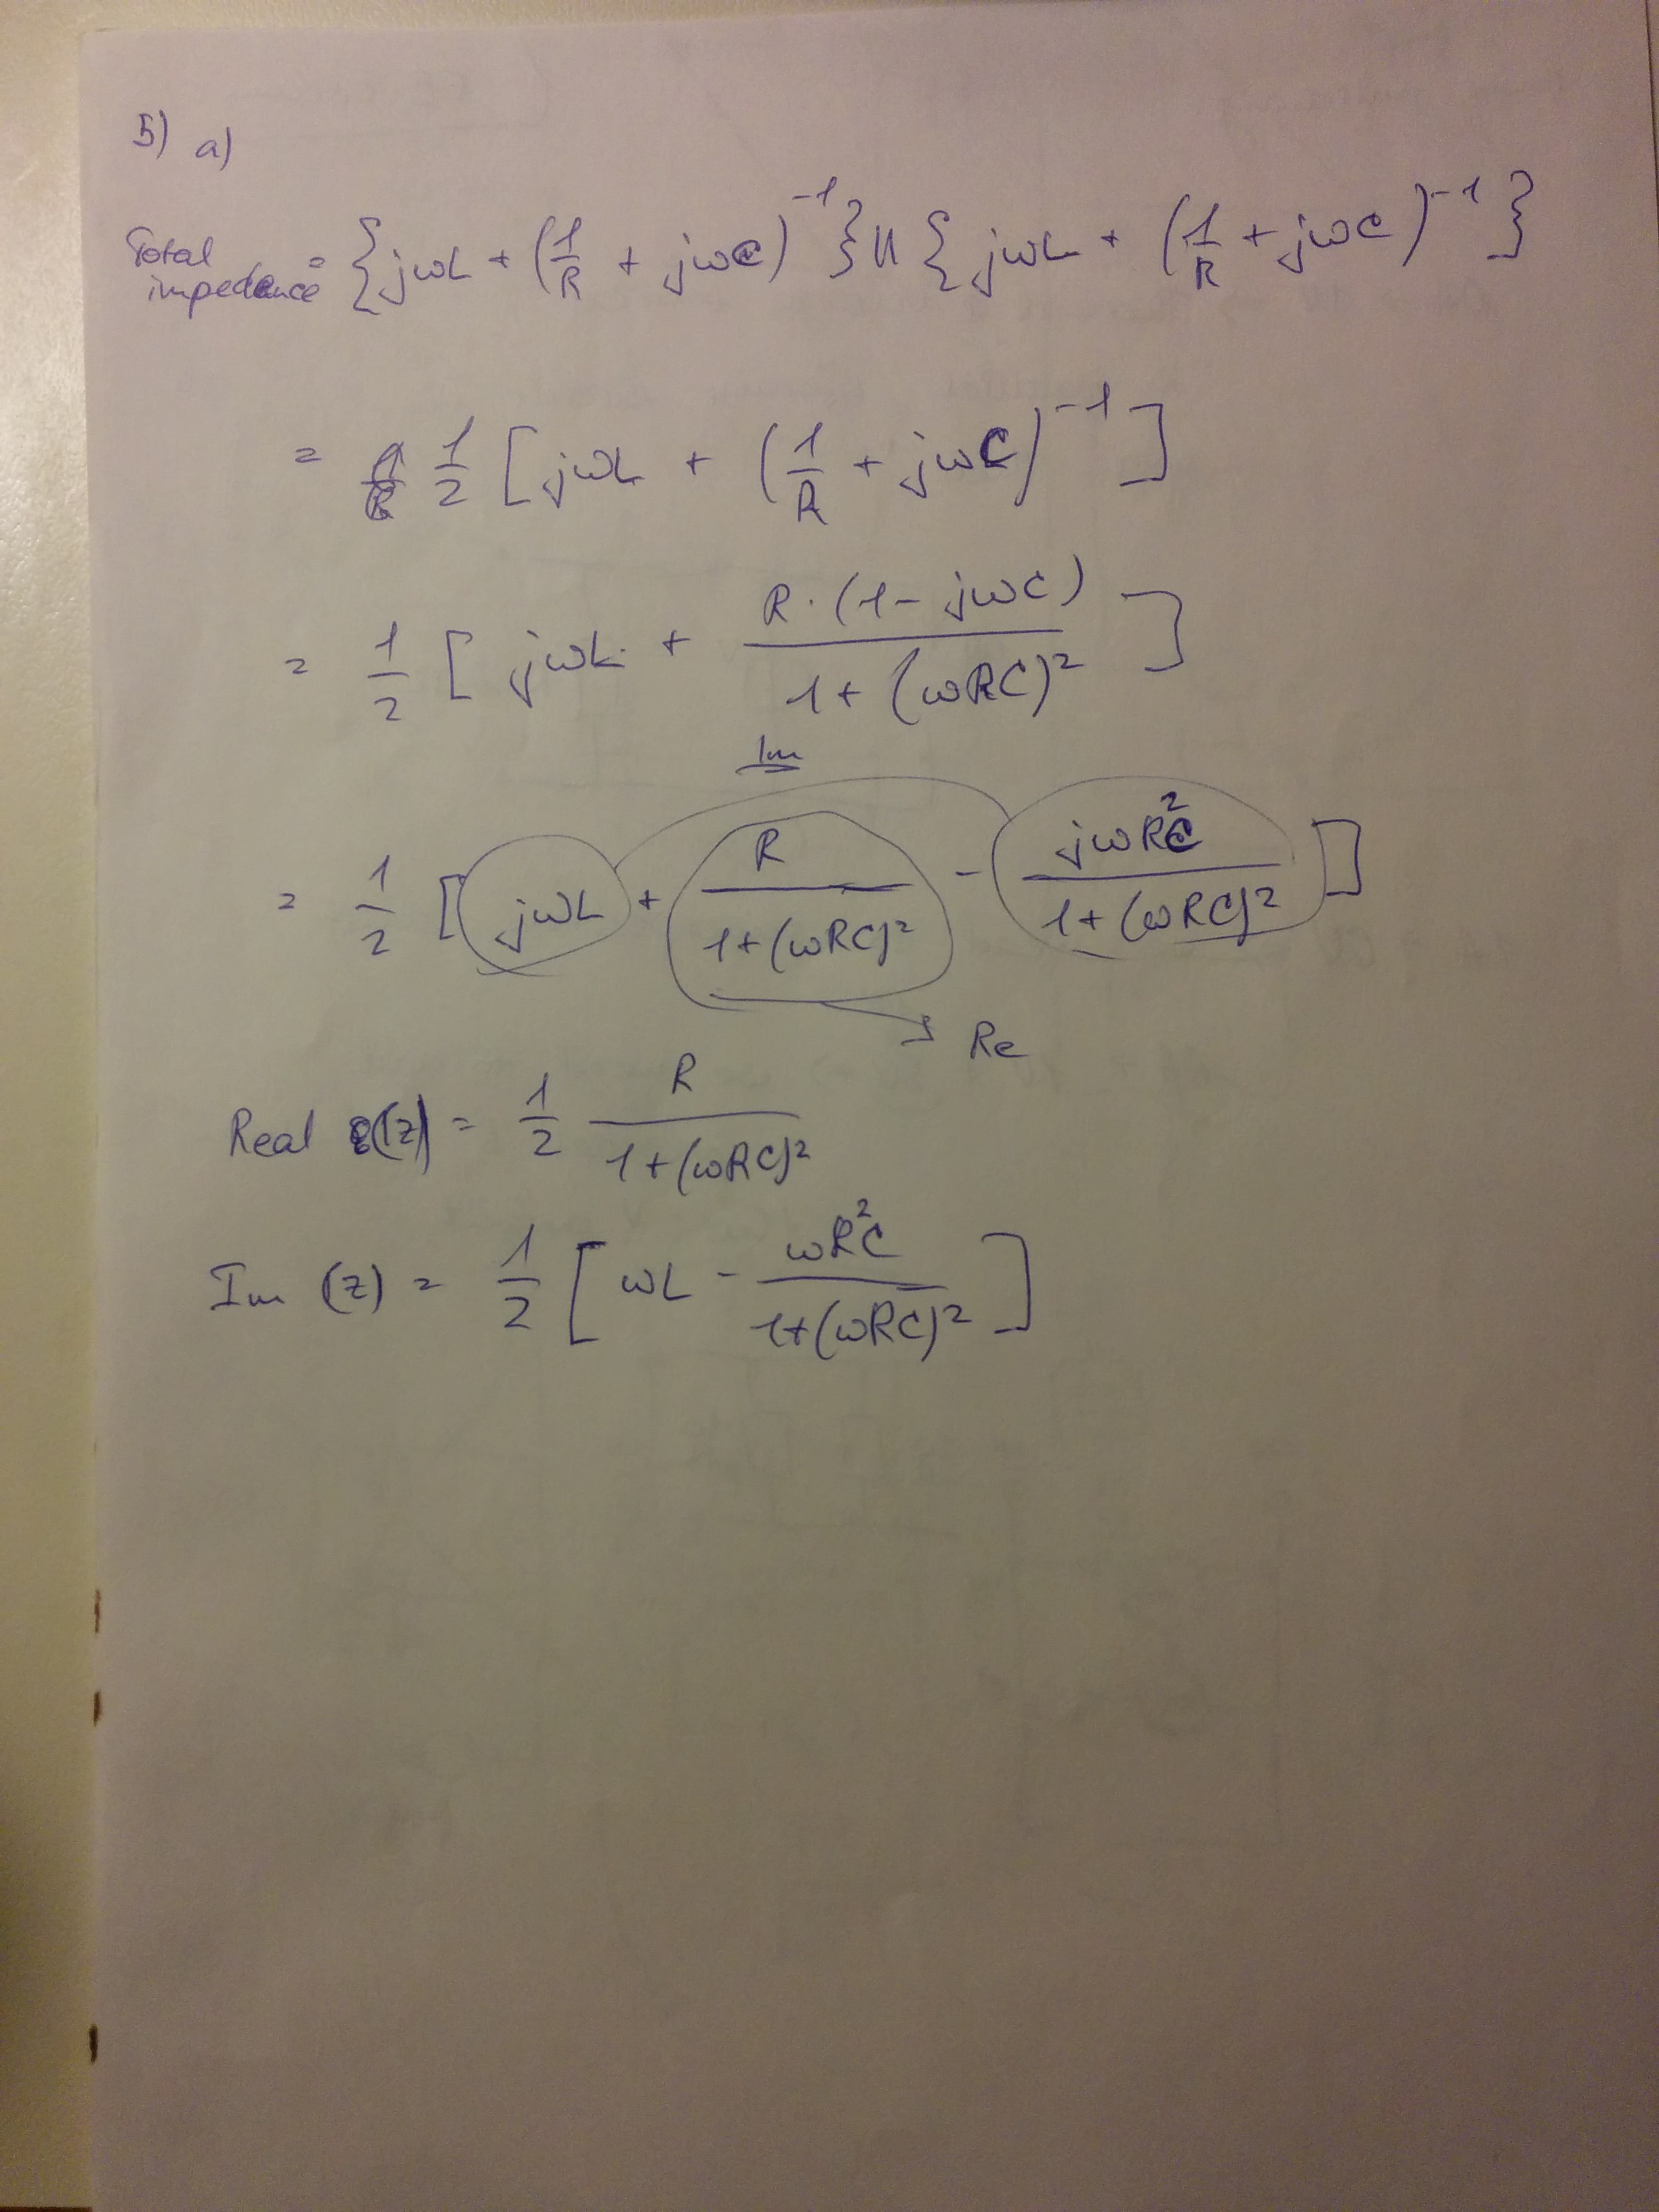 5) a)
Total impedance = {jωL + (1/R + jωC)^-1} || {jωL + (1/R + jωC)^-1}
= 1/2 [jωL + (1/R + jωC)^-1]
= 1/2 [jωL + R·(1-jωC) / 1+(ωRC)²]
Im
= 1/2 [jωL + R / 1+(ωRC)² - jωR²C / 1+(ωRC)²]
Re
Real (z) = 1/2 R / 1+(ωRC)²
Im (z) = 1/2 [ωL - ωR²C / 1+(ωRC)²]